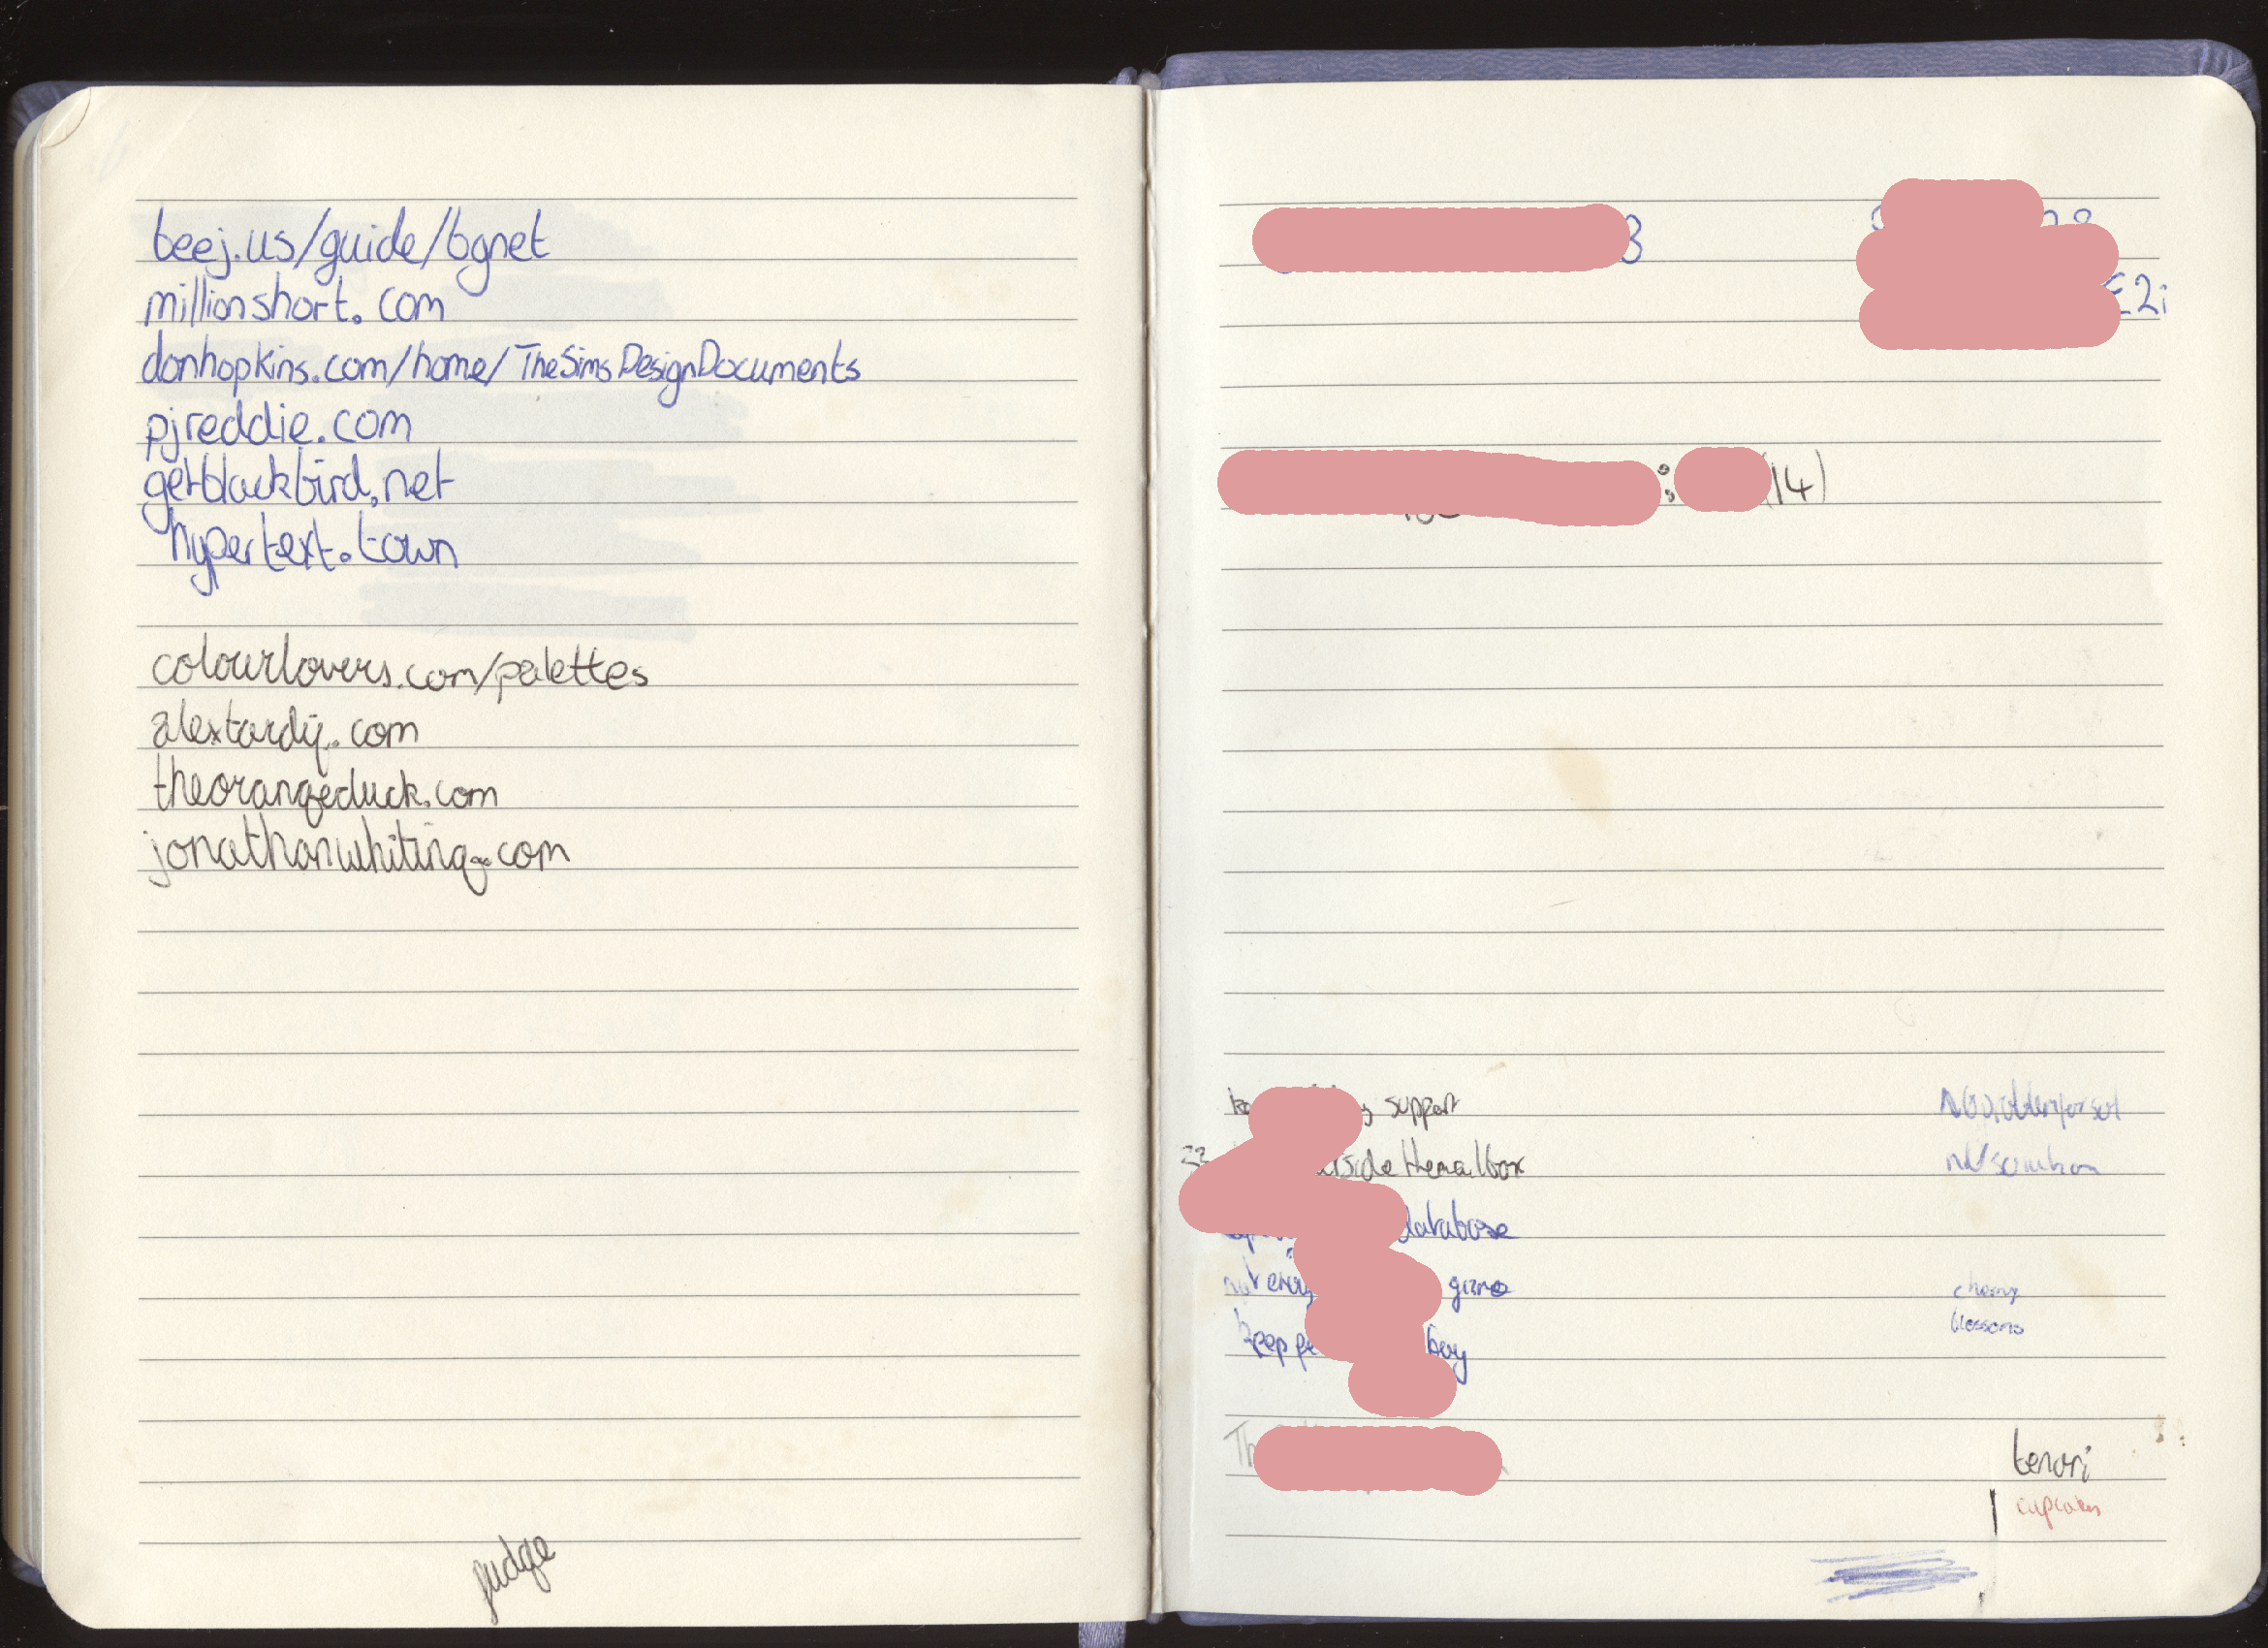 beej.us/guide/bgnet
millionshort.com
donhopkins.com/home/TheSimsDesignDocuments
pjreddie.com
getblackbird.net
hypertext.town
colourlovers.com/palettes
alextardif.com
theorangeduck.com
jonathanwhiting.com
judge
3
E2i
: (14)
support
database
boy
cherry
blossoms
tenori
cupcakes